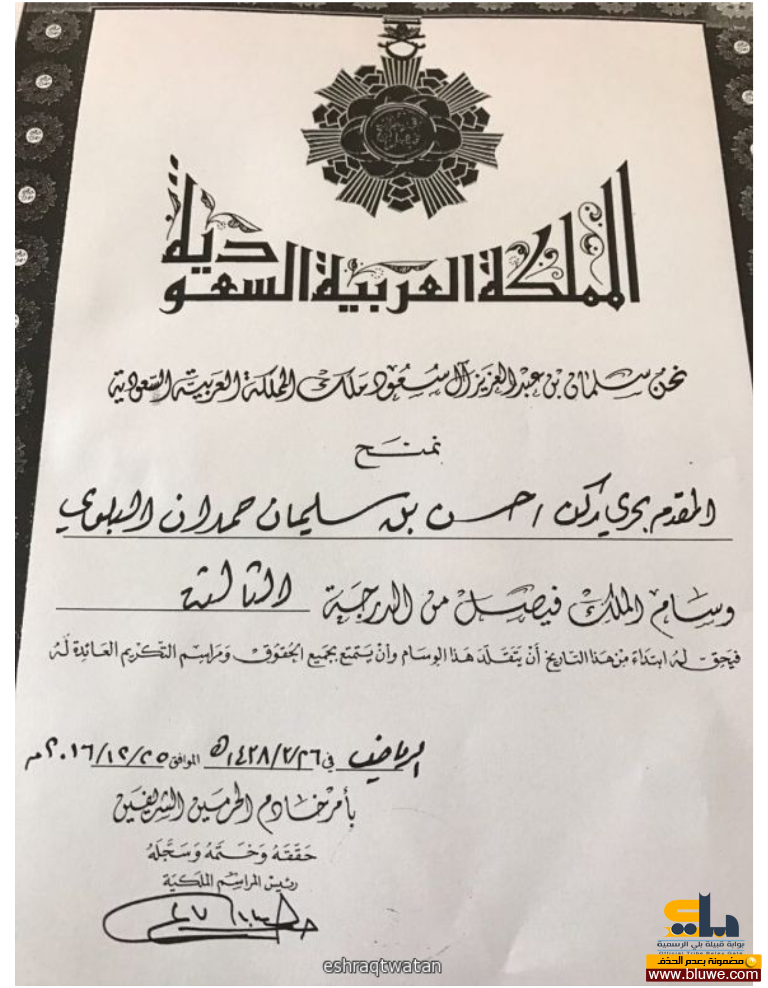 المملكة العربية السعودية
نحن سلمان بن عبدالعزيز آل سعود ملك المملكة العربية السعودية
نمنح
المقدم بحري ركن احسن بن سليمان حمدان البلوي
وسام الملك فيصل من الدرجة الثالثة
فيحق له ابتداء من هذا التاريخ أن يتقلد هذا الوسام وأن يتمتع بجميع الحقوق ومراسم التكريم العائدة له
الرياض في ١٤٣٨/٣/٢٦ ه الموافق ٢٠١٦/١٢/٢٥ م
بأمر خادم الحرمين الشريفين
حققه وختمه وسجله
رئيس المراسم الملكية
eshraqtwatan
بلي
بوابة قبيلة بلي الرسمية
مضمونة بعدم الحذف
www.bluwe.com